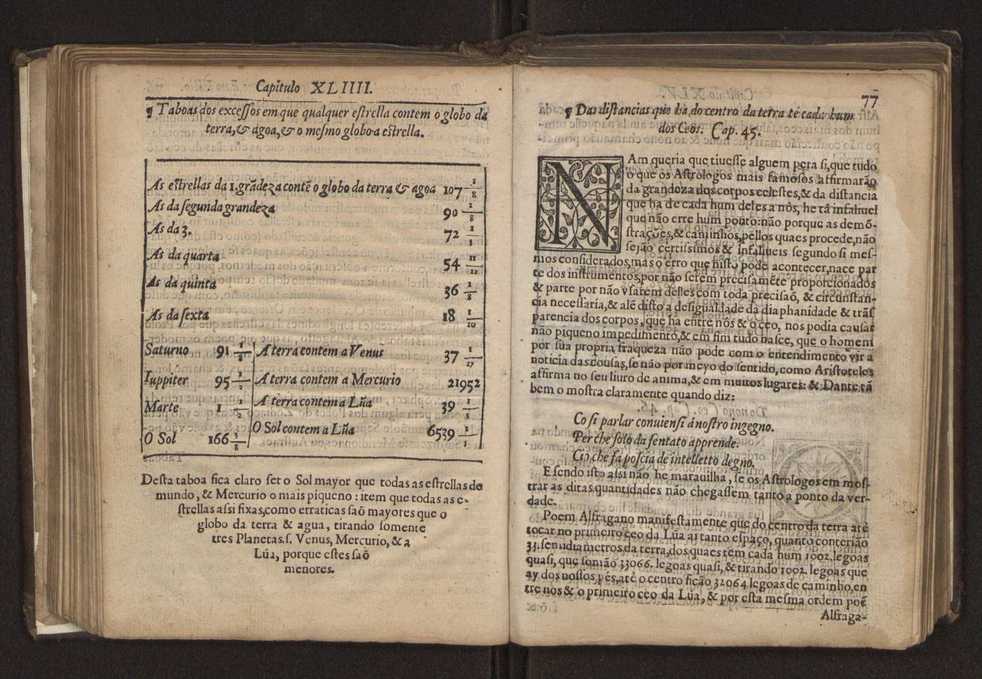 Capitulo XLIIII.
¶ Taboas dos excessos em que qualquer estrella contem o globo da
terra, & agoa, & o mesmo globo a estrella.
As estrellas da 1. grãdeza contẽ o globo da terra & agoa 107 1/8
As da segunda grandeza 90
As da 3. 72
As da quarta 54
As da quinta 36 1/8
As da sexta 18 1/10
Saturno 91 A terra contem a Venus 37
Iuppiter 95 A terra contem a Mercurio 21952
Marte 1 A terra contem a Lũa 39
O Sol 166 O Sol contem a Lũa 6539
Desta taboa fica claro ser o Sol mayor que todas as estrellas do
mundo, & Mercurio o mais piqueno: item que todas as e-
strellas assi fixas, como erraticas saõ mayores que o
globo da terra & agua, tirando somente
tres Planetas. s. Venus, Mercurio, & a
Lũa, porque estes saõ
menores.
77
¶ Das distancias que ha do centro da terra tè cada hum
dos Ceos. Cap. 45.
NAm queria que tiuesse alguem pera si, que tudo
o que os Astrologos mais famosos affirmarão
da grandeza dos corpos celestes, & da distancia
que ha de cada hum deles a nòs, he tã infaliuel
que não erre hum ponto: não porque as demõ-
strações, & caminhos, pellos quaes procede, não
sejão certissimos & infaliueis segundo si mes-
mos considerados, mas o erro que nisto pode acontecer, nace par
te dos instrumentos, por não serem precisamẽte proporcionados
& parte por não vsarem delles com toda precisaõ, & circunstan-
cia necessaria, & alẽ disto a desigualdade da diaphanidade & trãs
parencia dos corpos, que ha entre nòs & o ceo, nos podia causar
não piqueno impedimento, & em fim tudo nasce, que o homem
por sua propria fraqueza não pode com o entendimento vir a
noticia das cousas, se não por meyo do sentido, como Aristoteles
affirma no seu liuro de anima, & em muitos lugares: & Dante tã
bem o mostra claramente quando diz:
Co si parlar conuiensi á nostro ingegno.
Per che solo da sentato apprende.
Ciò che fa poscia de intelletto degno.
E sendo isto assi não he marauilha, se os Astrologos em mos-
trar as ditas quantidades não chegassem tanto a ponto da ver-
dade.
Poem Alfragano manifestamente que do centro da terra atè
tocar no primeiro ceo da Lũa ai tanto espaço, quanto conterião
33. semidiametros da terra, dos quaes tem cada hum 1002. legoas
quasi, que somão 33066. legoas quasi, & tirando 1002. legoas que
ay dos nossos pès, atè o centro ficão 32064 legoas de caminho, en
tre nós & o primeiro ceo da Lũa, & por esta mesma ordem poẽ
Alfraga-